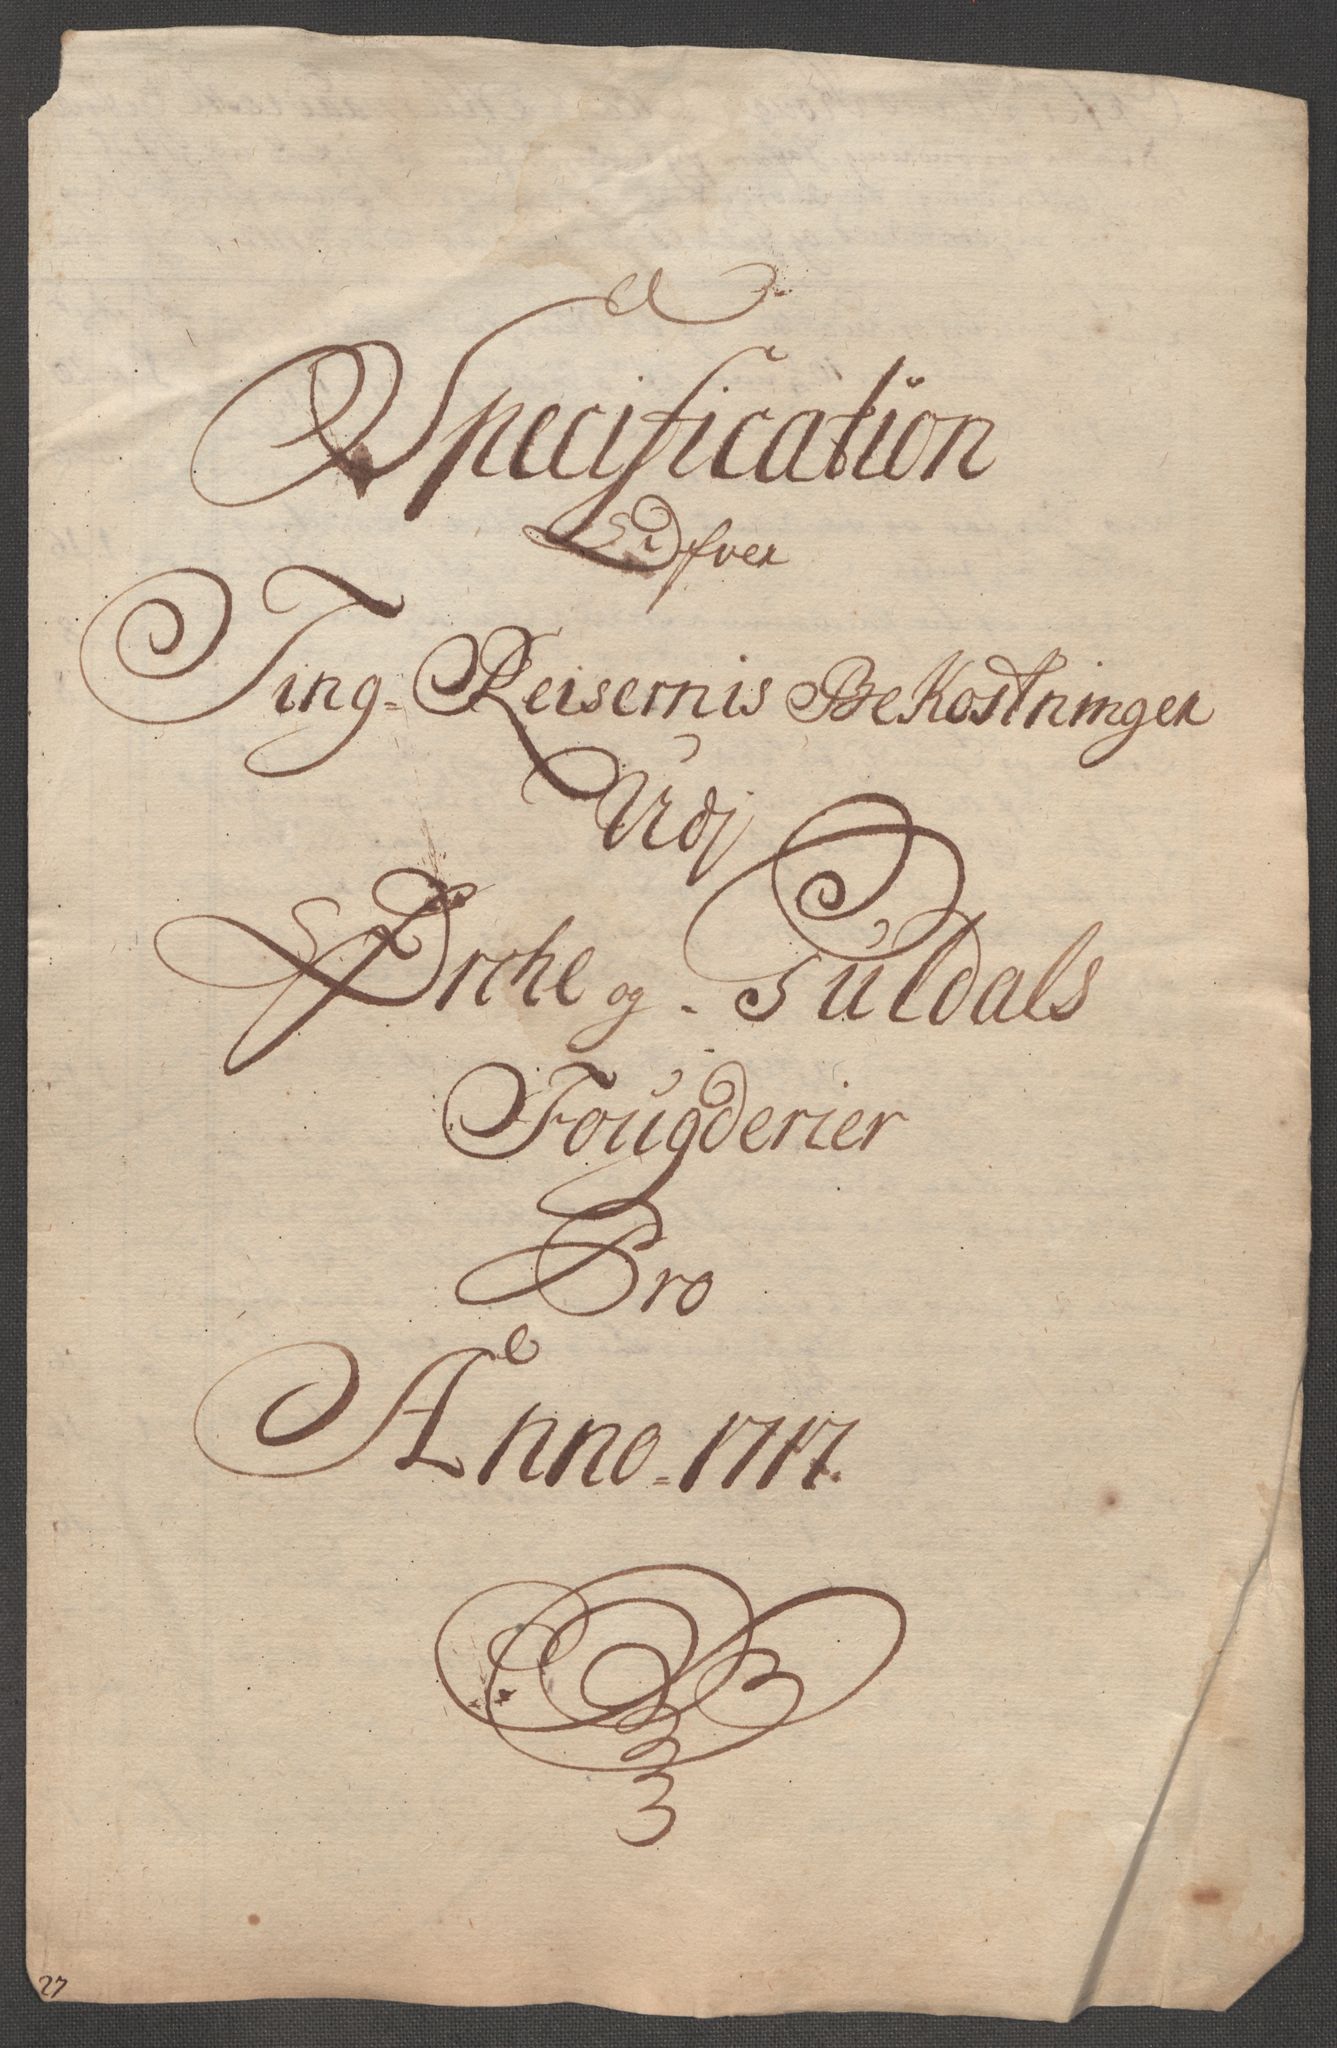 Specification
Ofver
Ting-Reisernis BeKostninger
Udj
Ørche og Guldals
Fougderier
Pro
Anno 1717.
27